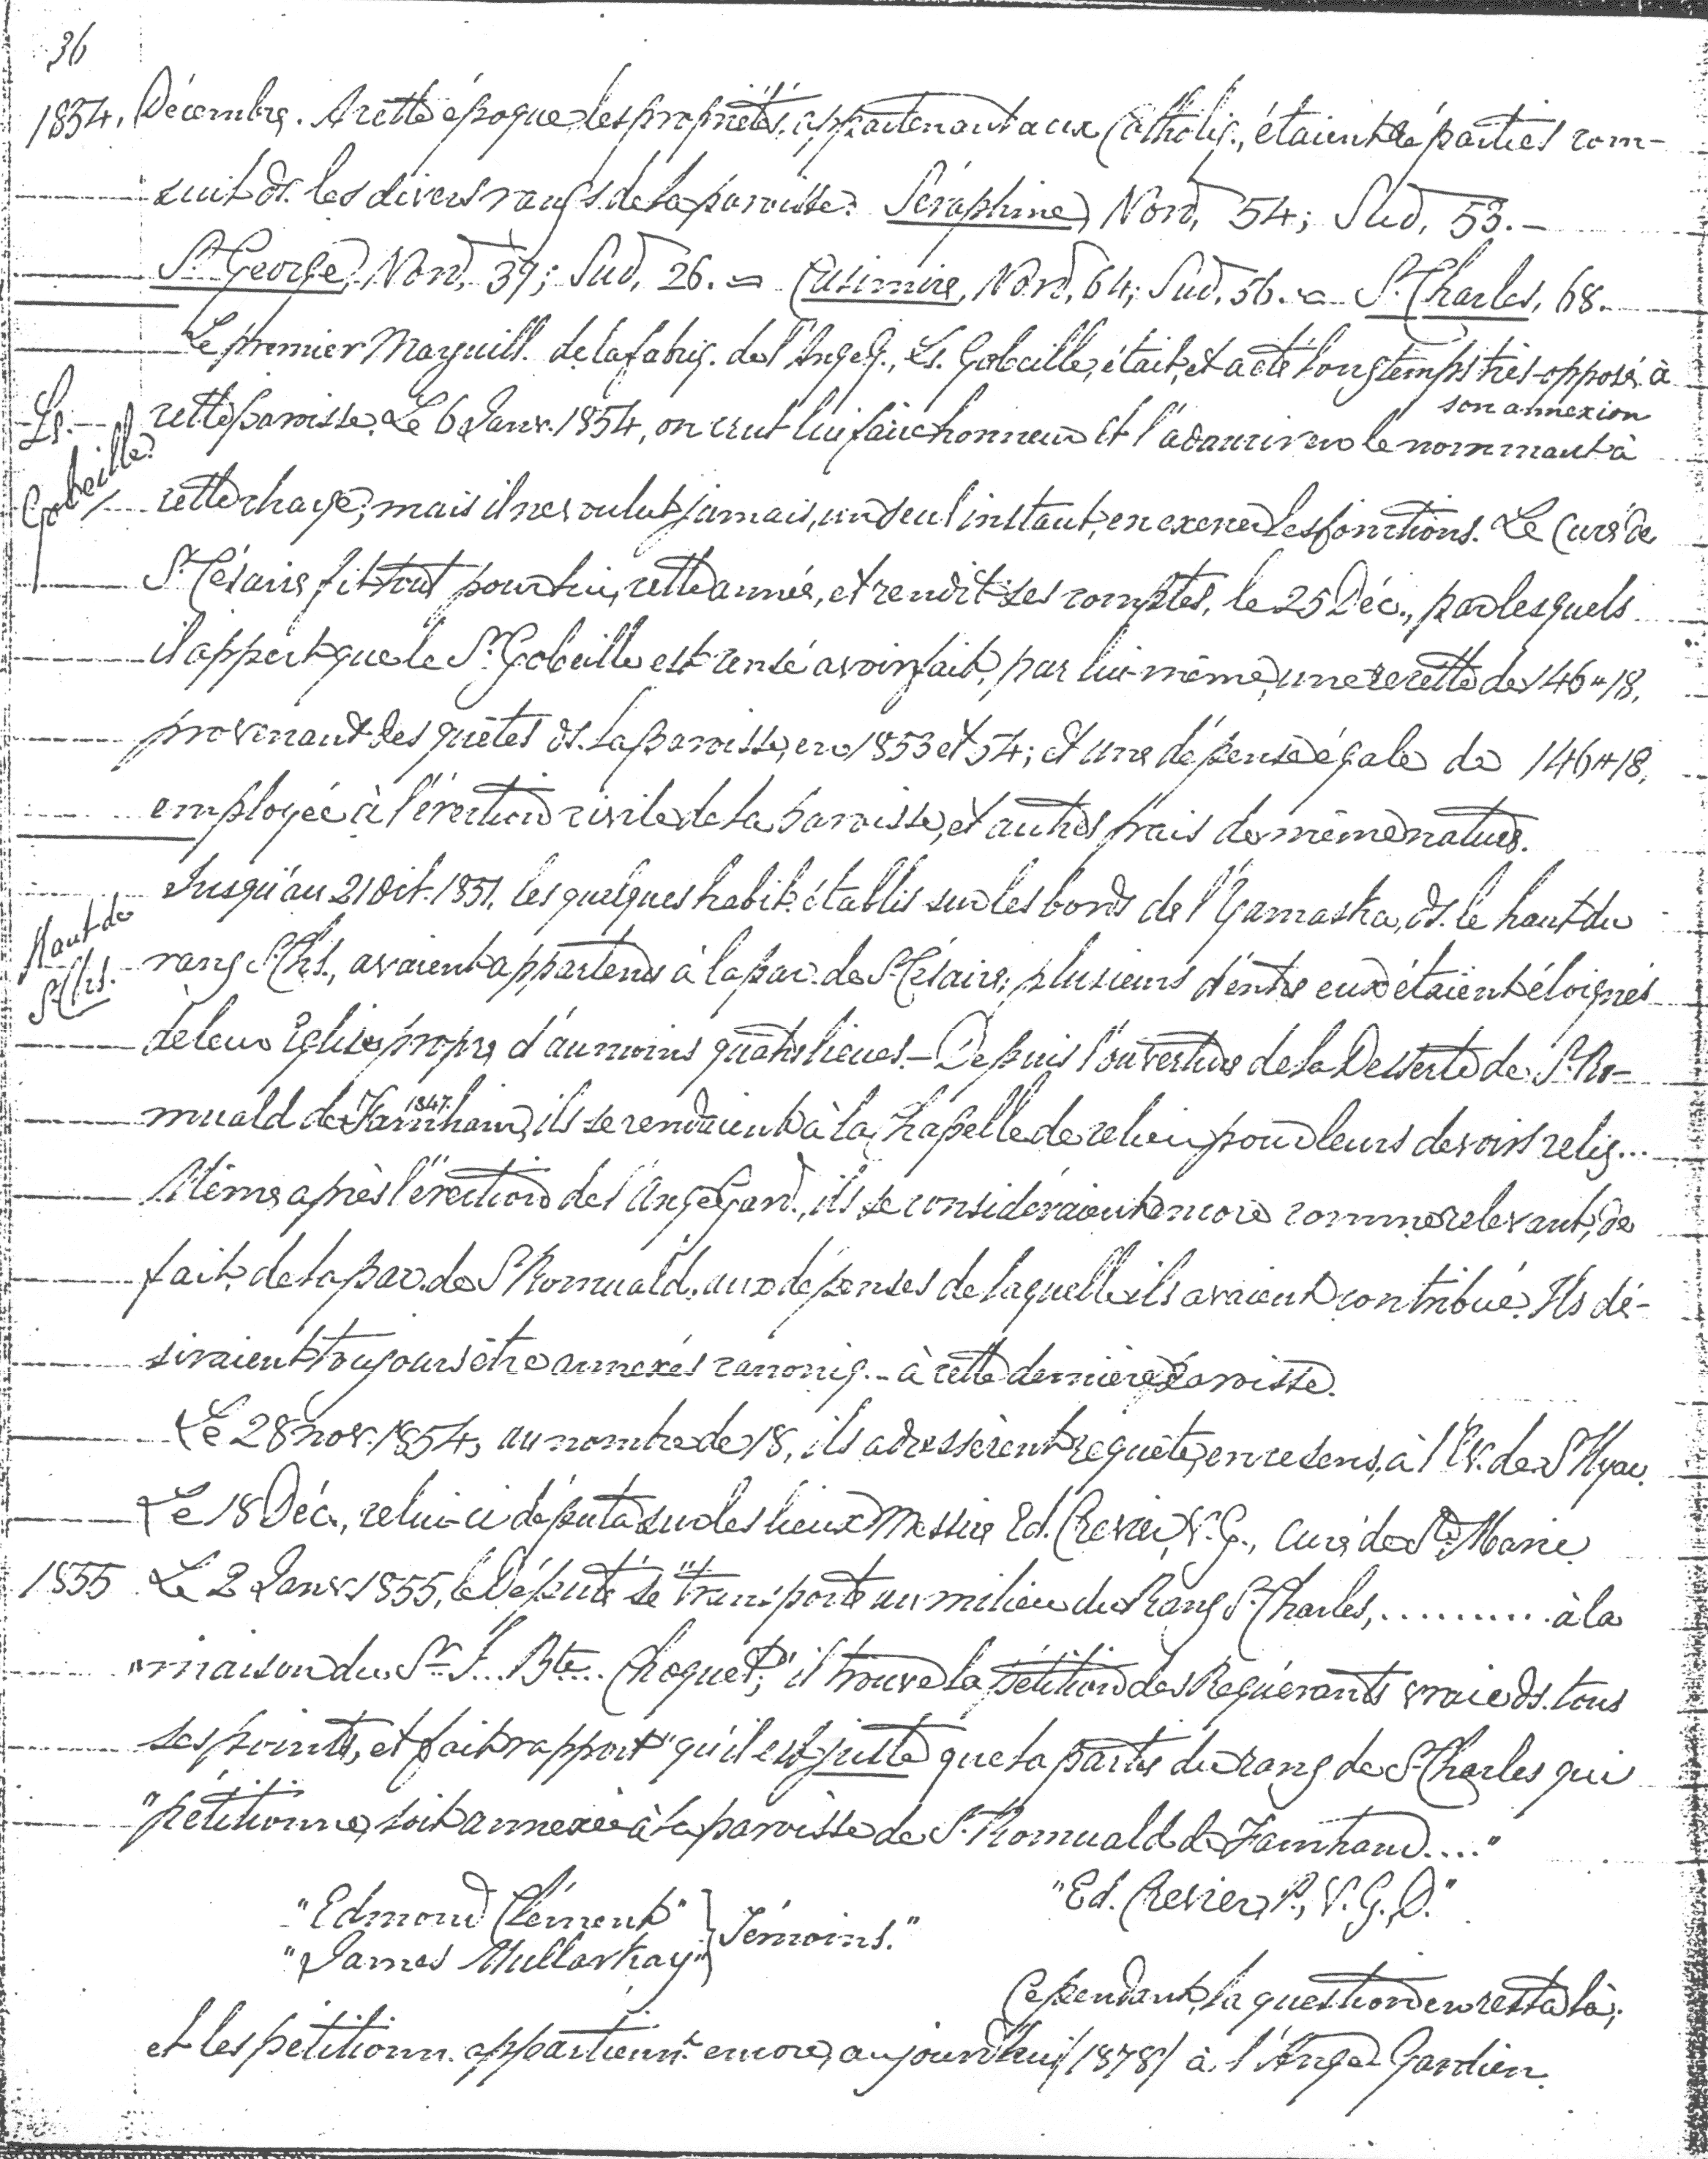 36
1854. Décembre. A cette époque, les propriétés, appartenant aux Catholiq., étaient réparties com-
suit ds. les divers rangs de la paroisse: Séraphine, Nord, 54; Sud, 53. -
St. George, Nord, 39; Sud, 26. = Casimire, Nord, 64; Sud, 56. = St. Charles, 68.
Le premier Marguill. de la fabriq. de l'Ange G., Ls. Gobeille, était, et a été longtemps très-opposé à
son annexion
Ls. Gobeille
cette paroisse. Le 6 Janv. 1854, on crut lui faire honneur et l'adoucir en le nommant à
cette charge; mais il ne voulut jamais, un seul instant, en exercer les fonctions. Le Curé de
St. Césaire fit tout pour lui, cette année, et rendit ses comptes, le 25 Déc., par lesquels
il appert que le Sr. Gobeille est censé avoir fait, par lui-même, une recette de 146 " 18,
provenant des quêtes ds. la paroisse, en 1853 et 54; et une dépense égale de 146 " 18,
employée à l'érection civile de la paroisse, et autres frais de même nature.
Haut de St. Chs.
Jusqu'au 21 Oct. 1851, les quelques habit. établis sur les bords de l'Yamaska, ds. le haut du
rang St. Chs., avaient appartenu à la par. de St. Césaire; plusieurs d'entre eux étaient éloignés
de leur Eglise propre d'au moins quatre lieues. - Depuis l'ouverture de la Desserte de St. Ro-
1847.
muald de Farnham, ils se rendaient à la Chapelle de ce lieu pour leurs devoirs relig...
Même après l'érection de l'Ange Gard., ils se considéraient encore comme relevant, de
fait, de la par. de St. Romuald, aux dépenses de laquelle ils avaient contribué. Ils dé-
siraient toujours être annexés canoniq.. à cette dernière Paroisse.
Le 28 nov. 1854, au nombre de 18, ils adressèrent requête, en ce sens, à l'Ev. de St. Hyac.
Le 18 Déc., celui-ci députa sur les lieux Messire Ed. Crevier, V. G., Curé de Ste. Marie.
1855 Le 2 Janv. 1855, le Député se "transporte au milieu du Rang St. Charles, .......... à la
"maison du Sr. J. Bte. Choquet;" il trouve la pétition des Requérants vraie ds. tous
ses points, et fait rapport "qu'il est juste que la partie du rang de St. Charles qui
"pétitionne, soit annexée à la paroisse de St. Romuald de Farnham...."
"Ed. Crevier, P., V. G., D."
"Edmond Clément" } Témoins."
"James Mullarkay"
Cependant, la question en resta là;
et les pétitionn. appartienn.t encore, aujourd'hui /1878/ à l'Ange Gardien.